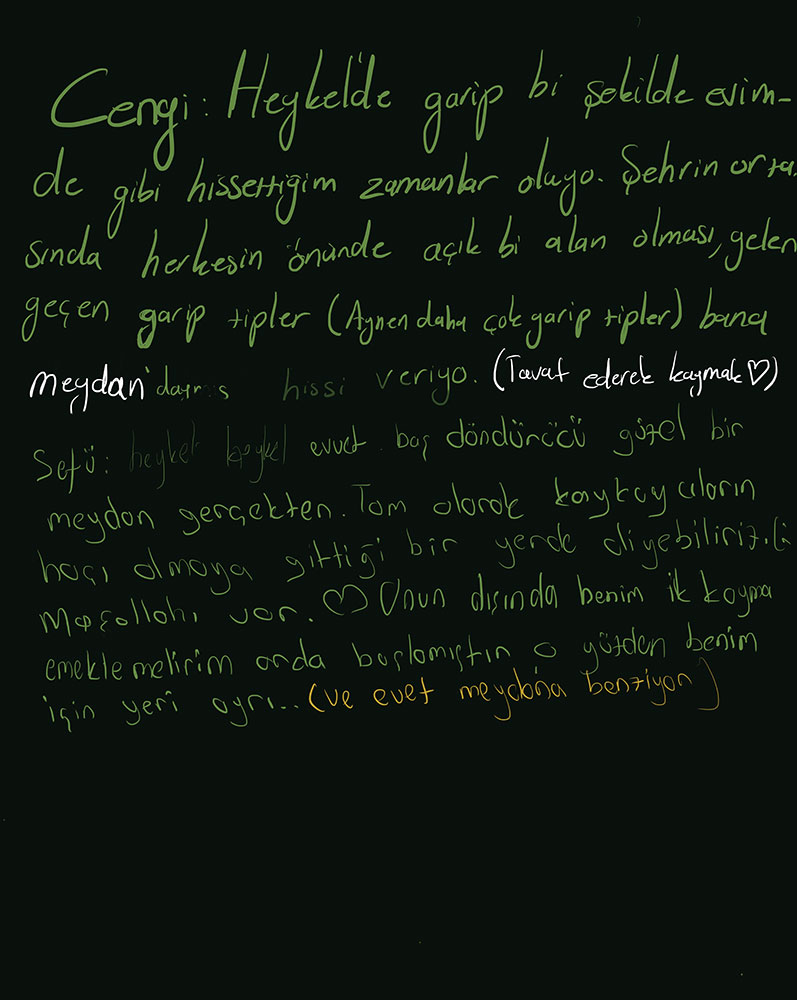 Cengi: Heykel'de garip bi şekilde evim-
de gibi hissettiğim zamanlar oluyo. Şehrin orta
sında herkesin önünde açık bi alan olması, gelen
geçen garip tipler (Aynen daha çok garip tipler) bana
meydan'daymış hissi veriyo. (Tavaf ederek kaymak♡)
Sefü: heykel heykel evvet. baş döndürücü güzel bir
meydan gerçekten. Tam olarak kaykaycıların
hacı olmaya gittiği bir yerde diyebiliriz.
Maşşallahı var. ♡ Onun dışında benim ilk kayma
emeklemelirim orda başlamıştın o yüzden benim
için yeri ayrı... (ve evet meydana benziyon)